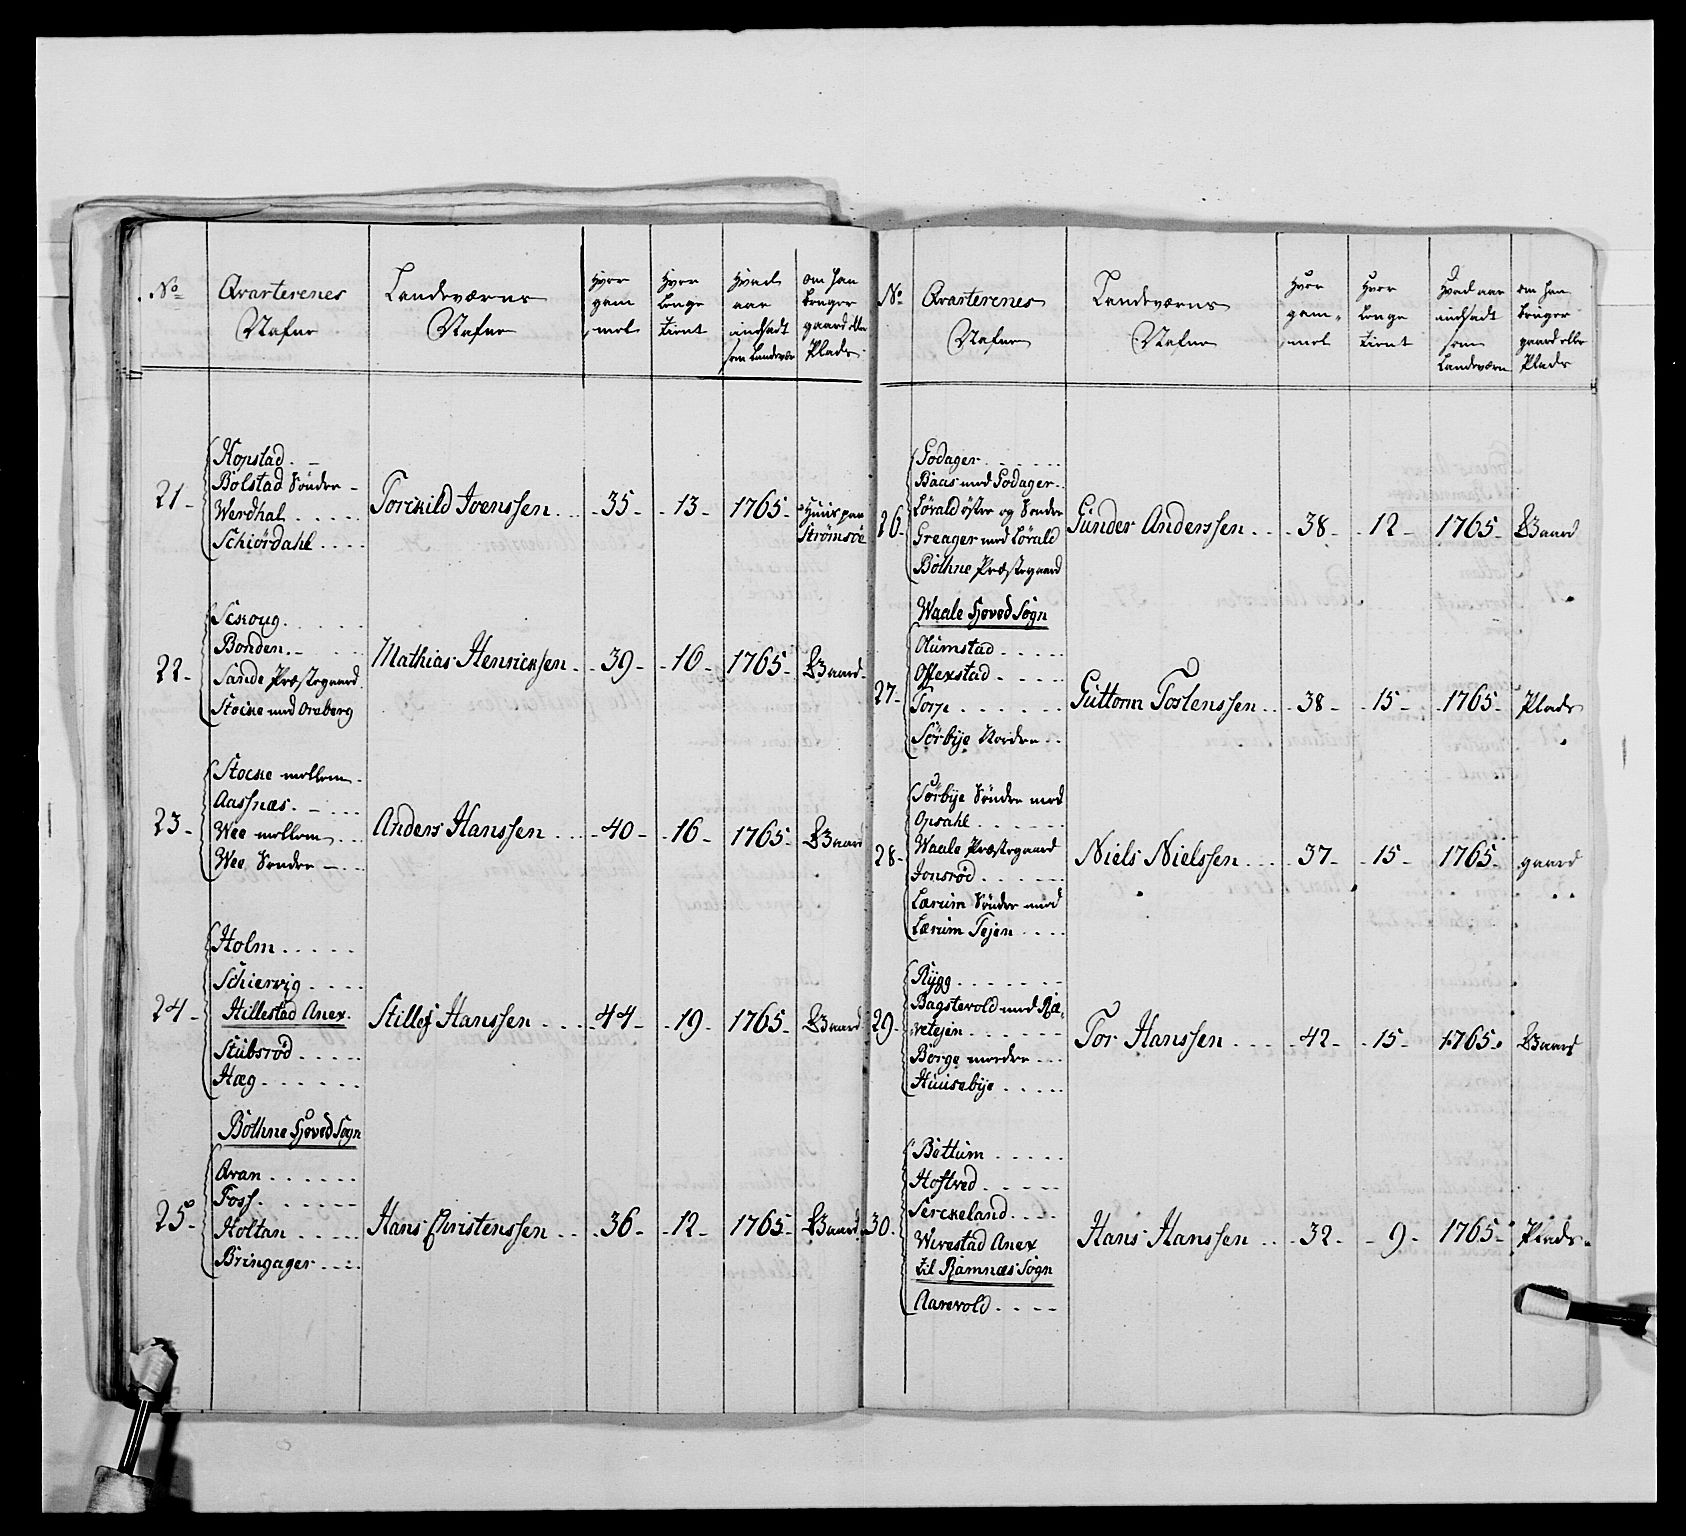 No
Qvarterenes
Nafne
Landeværns
Nafne
Hvor
gam
mel
Hvor
Lenge
tient
Hvad
aar
indsadt
som Landevær
om han
bruger
gaard eller
Plads
21-
Kopstad. -
Bolstad Söndre -
Werdhal
Schiördahl
Torckild Ivenssen
-35-
-13-
1765-
Strömsöe
22-
Sckoug
Bonden
Sande Præstegaard
Stocke med Oreberg
Mathias Henricksen
-39-
-16-
1765-
Gaard
23-
Stocke mellem
Aassnæs
Wee mellem
Wee Sondre
Anders Hanssen
-40-
-16-
1765-
Gaard
24-
Holm
Schiervig
Hillestad Anex.
Stubsröd
Hæg
Stillef Hanssen
-44-
-19-
1765-
Gaard
Bothne HovedSogn
25-
Qvan
Foss
Holtan
Bringager
Hans Christenssen
-36-
-12-
1765-
Gaard
No
Qvarterenes
Nafne
Landeværns
Nafne
Hvor
gam-
mel
Hvor
Lenge
tient
Hvad aar
indsadt
som
Landeværn
om han
bruger
gaard eller
Plads
26-
Godager
Baas med Godager
Lörald östre og Sondre
Greager med Lörald
Bothne Præstegaard
Gunder Anderssen
-38-
-12-
1765-
Gaard
Waale HovedSogn
27-
Aumstad
Offexstad
Torp
Sörbye Nordre
Guttorm Tostenssen
-38-
-15-
-1765-
Plads
28-
Sörbye Söndre med
Opsahl
Waale Præstegaard
Jonsröd
Lærum Söndre med
Lærum Tejen
Niels Nielssen
-37-
-15-
1765-
gaard
29-
Rygg
Bagstevold med Ræ-
vetejen
Borge nordre
Huusebye
Tor Hanssen
-42-
-15-
1765-
Gaard
30.
Bettum
Hoftved
Serckeland
Wivestad Anex
til Ramnæs Sogn
Aarevold
Hans Hanssen
-32-
-9-
1765-
Plads